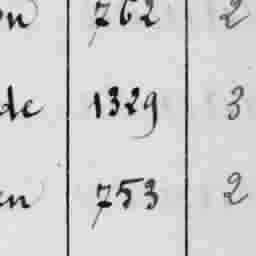 on 762 2
de 1329 3
en 753 2